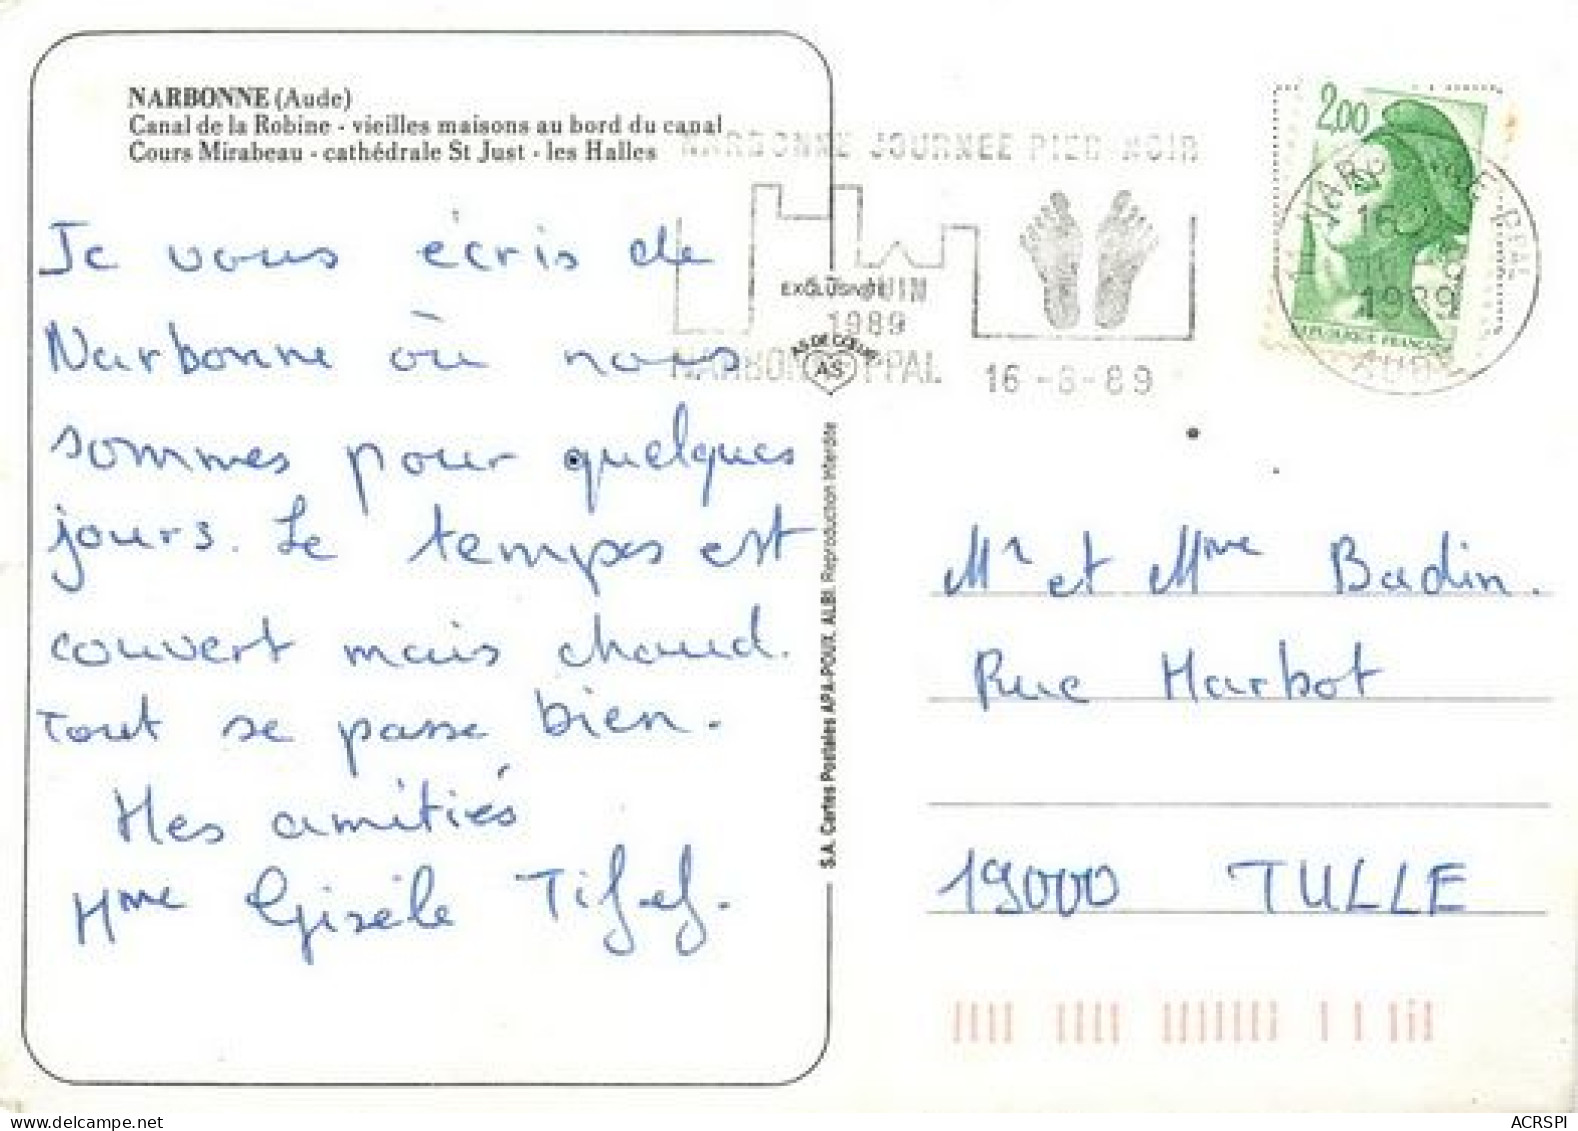 NARBONNE (Aude)
Canal de la Robine - vieilles maisons au bord du canal
Cours Mirabeau - cathédrale St Just - les Halles
NARBONNE JOURNEE PIED NOIR
JUIN
1989
NARBONNE PPAL 16 -6-89
2,00
REPUBLIQUE FRANCAISE
NARBONNE
16
1989
AUDE
EXCLUSIVITÉ
AS DE CŒUR
AS
Je vous écris de
Narbonne où nous
sommes pour quelques
jours. Le temps est
couvert mais chaud.
Tout se passe bien.
Mes amitiés
Mme Gisèle
S.A. Cartes Postales APA-POUX, ALBI. Reproduction Interdite
Mr et Mme Badin.
Rue Marbot
19000 TULLE
ACRSPI